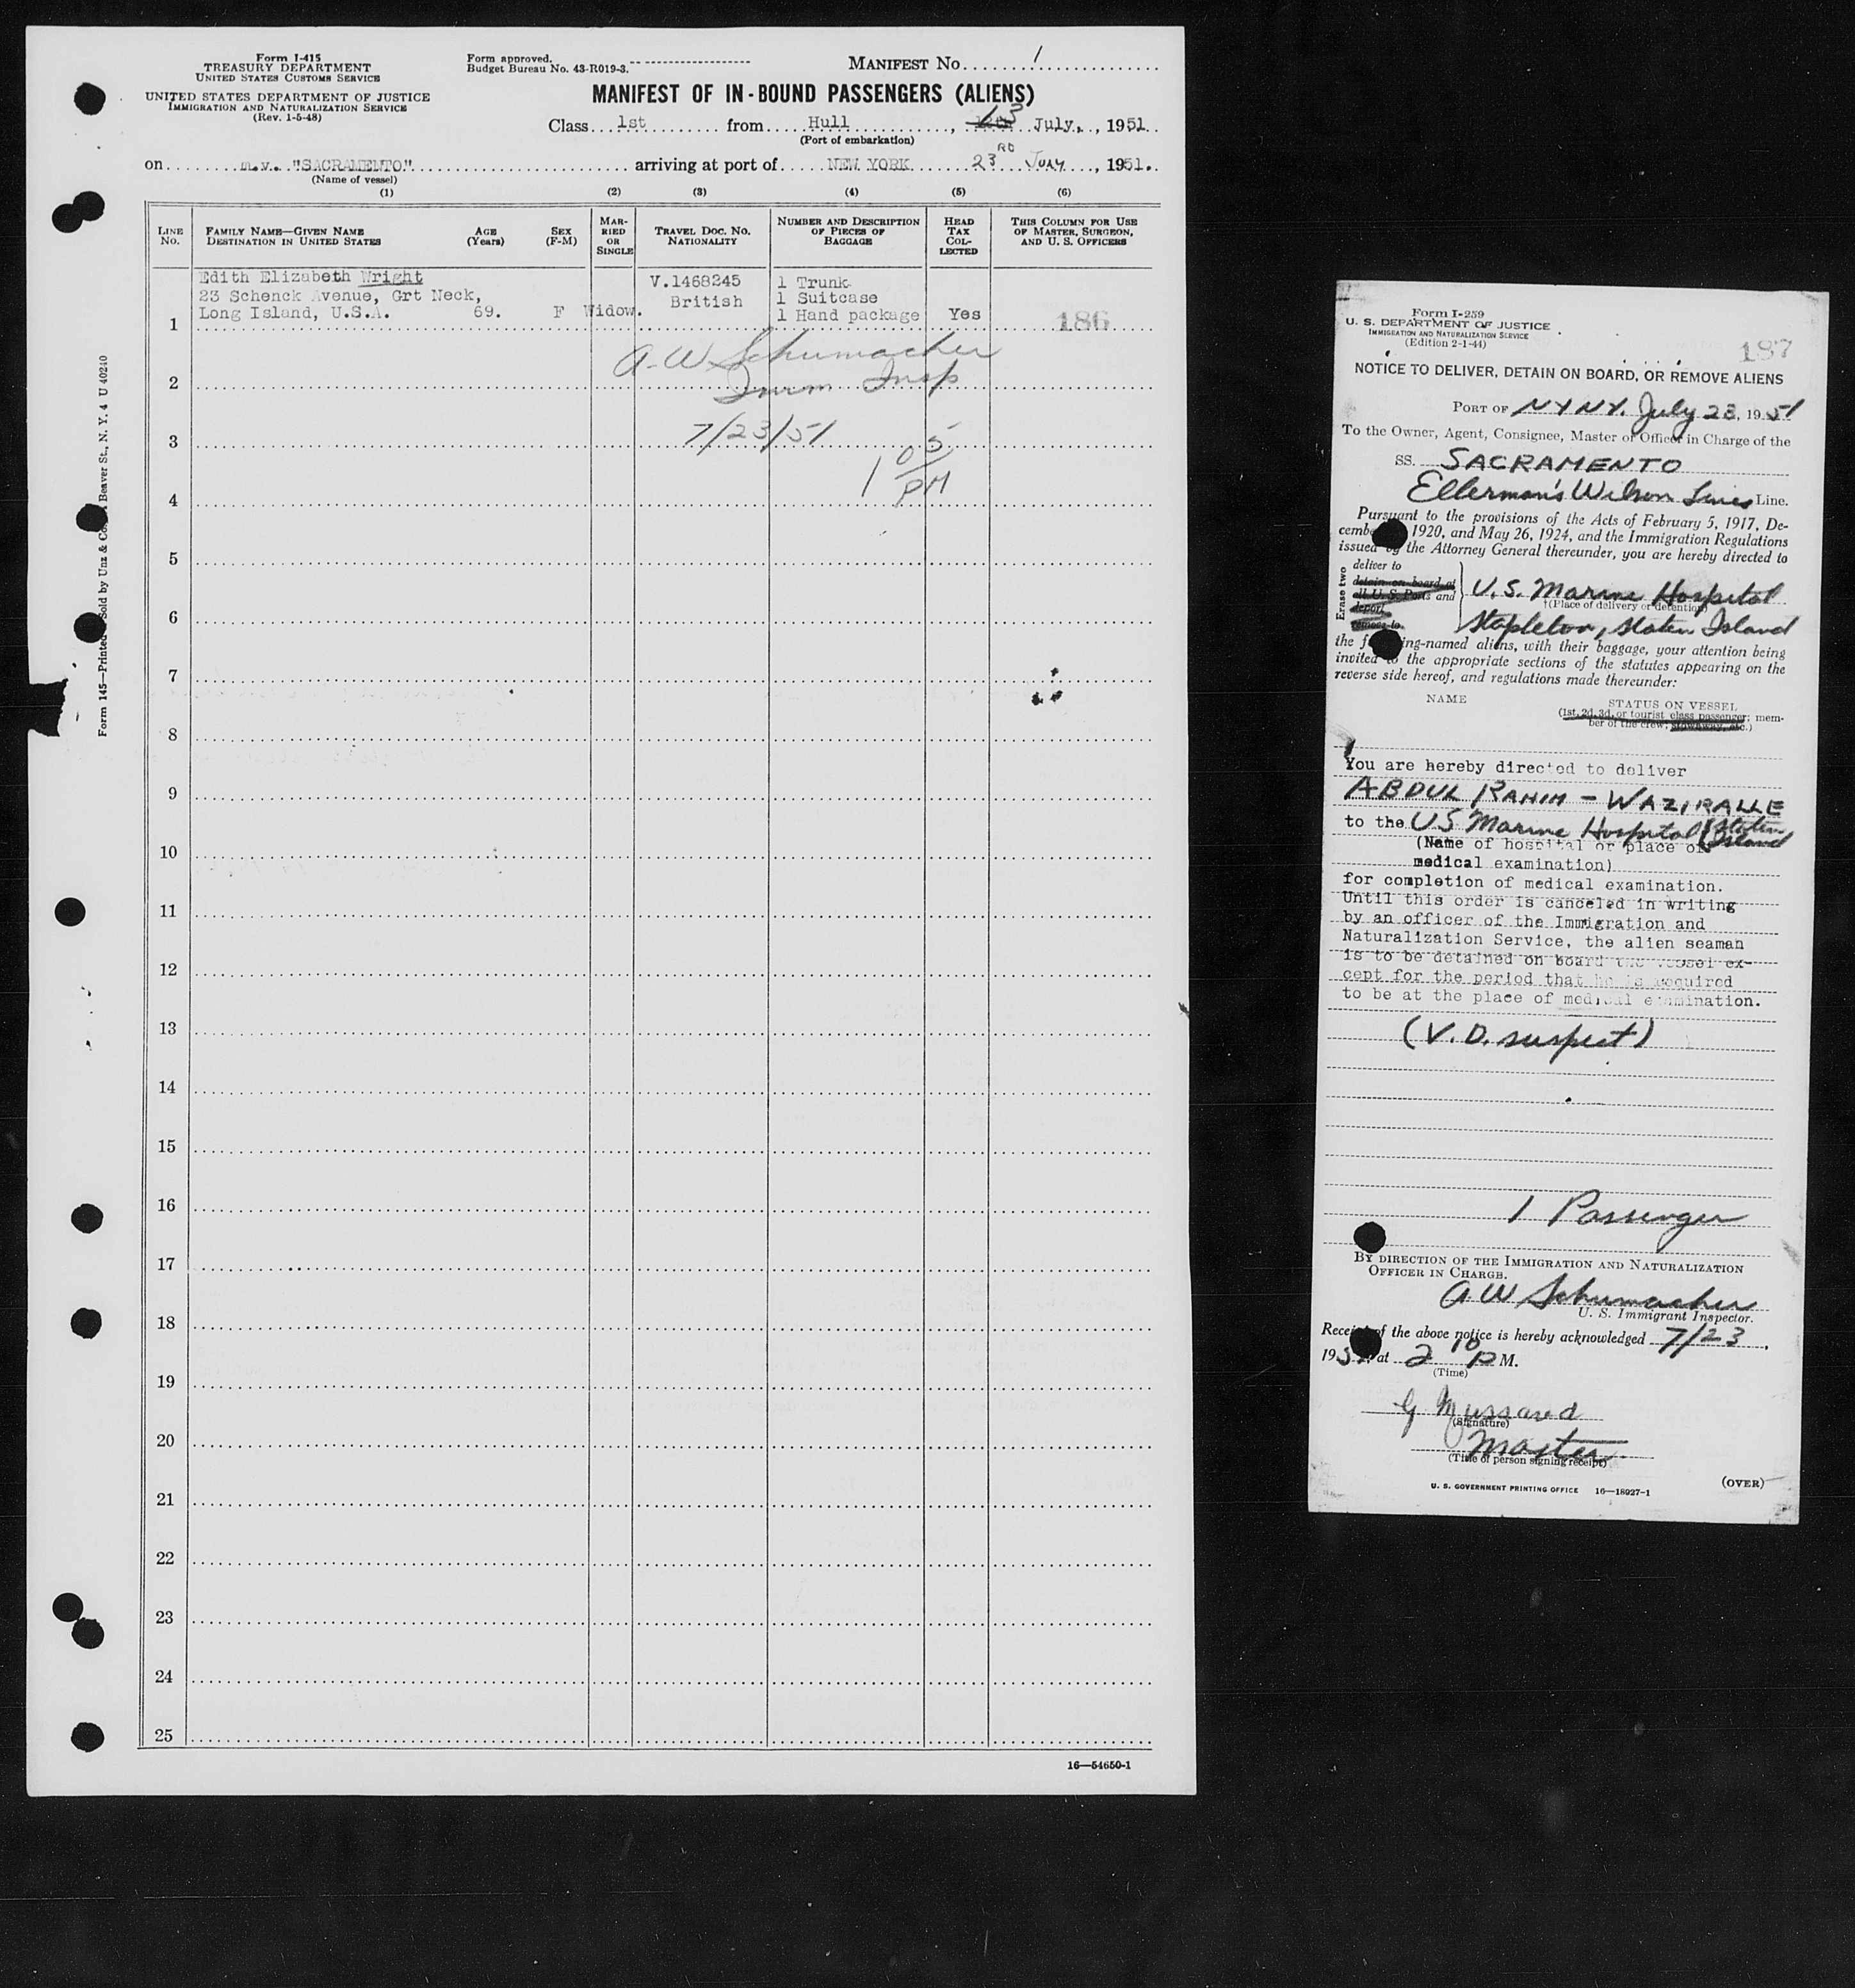 Form I-415
TREASURY DEPARTMENT
UNITED STATES CUSTOMS SERVICE
UNITED STATES DEPARTMENT OF JUSTICE
IMMIGRATION AND NATURALIZATION SERVICE
(Rev. 1-5-48)
Form approved.
Budget Bureau No. 43-R019-3.
MANIFEST NO. 1
MANIFEST OF IN-BOUND PASSENGERS (ALIENS)
Class 1st from Hull, 13 July, 1951
(Port of embarkation)
on m.v. "SACRAMENTO" arriving at port of NEW YORK 23RD July, 1951.
(Name of vessel)
(1) (2) (3) (4) (5) (6)
LINE NO.
FAMILY NAME—GIVEN NAME
DESTINATION IN UNITED STATES
AGE (Years)
SEX (F-M)
MARRIED OR SINGLE
TRAVEL DOC. NO. NATIONALITY
NUMBER AND DESCRIPTION OF PIECES OF BAGGAGE
HEAD TAX COLLECTED
THIS COLUMN FOR USE OF MASTER, SURGEON, AND U. S. OFFICERS
Edith Elizabeth Wright V.1468245 1 Trunk
23 Schenck Avenue, Grt Neck, British 1 Suitcase
Long Island, U.S.A. 69. F Widow. 1 Hand package Yes 186
1
A. W Schumacher
2 Imm Insp
3 7/23/51
1 05 PM
4
5
6
7
8
9
10
11
12
13
14
15
16
17
18
19
20
21
22
23
24
25
16—54650-1
Form 145—Printed Sold by Unz & Co. Beaver St., N. Y. 4 U 40240
Form I-259
U. S. DEPARTMENT OF JUSTICE
IMMIGRATION AND NATURALIZATION SERVICE
(Edition 2-1-44)
187
NOTICE TO DELIVER, DETAIN ON BOARD, OR REMOVE ALIENS
PORT OF NY NY. July 23, 1951
To the Owner, Agent, Consignee, Master or Officer in Charge of the
SS. SACRAMENTO
Ellerman's Wilson Lines Line.
Pursuant to the provisions of the Acts of February 5, 1917, De-
cember 1920, and May 26, 1924, and the Immigration Regulations
issued by the Attorney General thereunder, you are hereby directed to
Erase two
deliver to
detain on board at
all U. S. Ports and
deport
remove to
U. S. Marine Hospital
(Place of delivery or detention)
Stapleton, Staten Island
the following-named aliens, with their baggage, your attention being
invited to the appropriate sections of the statutes appearing on the
reverse side hereof, and regulations made thereunder:
NAME STATUS ON VESSEL
(1st, 2d, 3d, or tourist class passenger; mem-
ber of the crew; stowaway, etc.)
You are hereby directed to deliver
ABDUL RAHIM - WAZIRALLE
to the US Marine Hospital Staten Island
(Name of hospital or place of
medical examination)
for completion of medical examination.
Until this order is canceled in writing
by an officer of the Immigration and
Naturalization Service, the alien seaman
is to be detained on board the vessel ex-
cept for the period that he is required
to be at the place of medical examination.
(V. D. suspect)
1 Passenger
BY DIRECTION OF THE IMMIGRATION AND NATURALIZATION
OFFICER IN CHARGE.
A. W Schumacher
U. S. Immigrant Inspector.
Receipt of the above notice is hereby acknowledged 7/23,
195 at 2 10 P M.
(Time)
(Signature)
Master
(Title of person signing receipt)
U. S. GOVERNMENT PRINTING OFFICE 16—18927-1
(OVER)